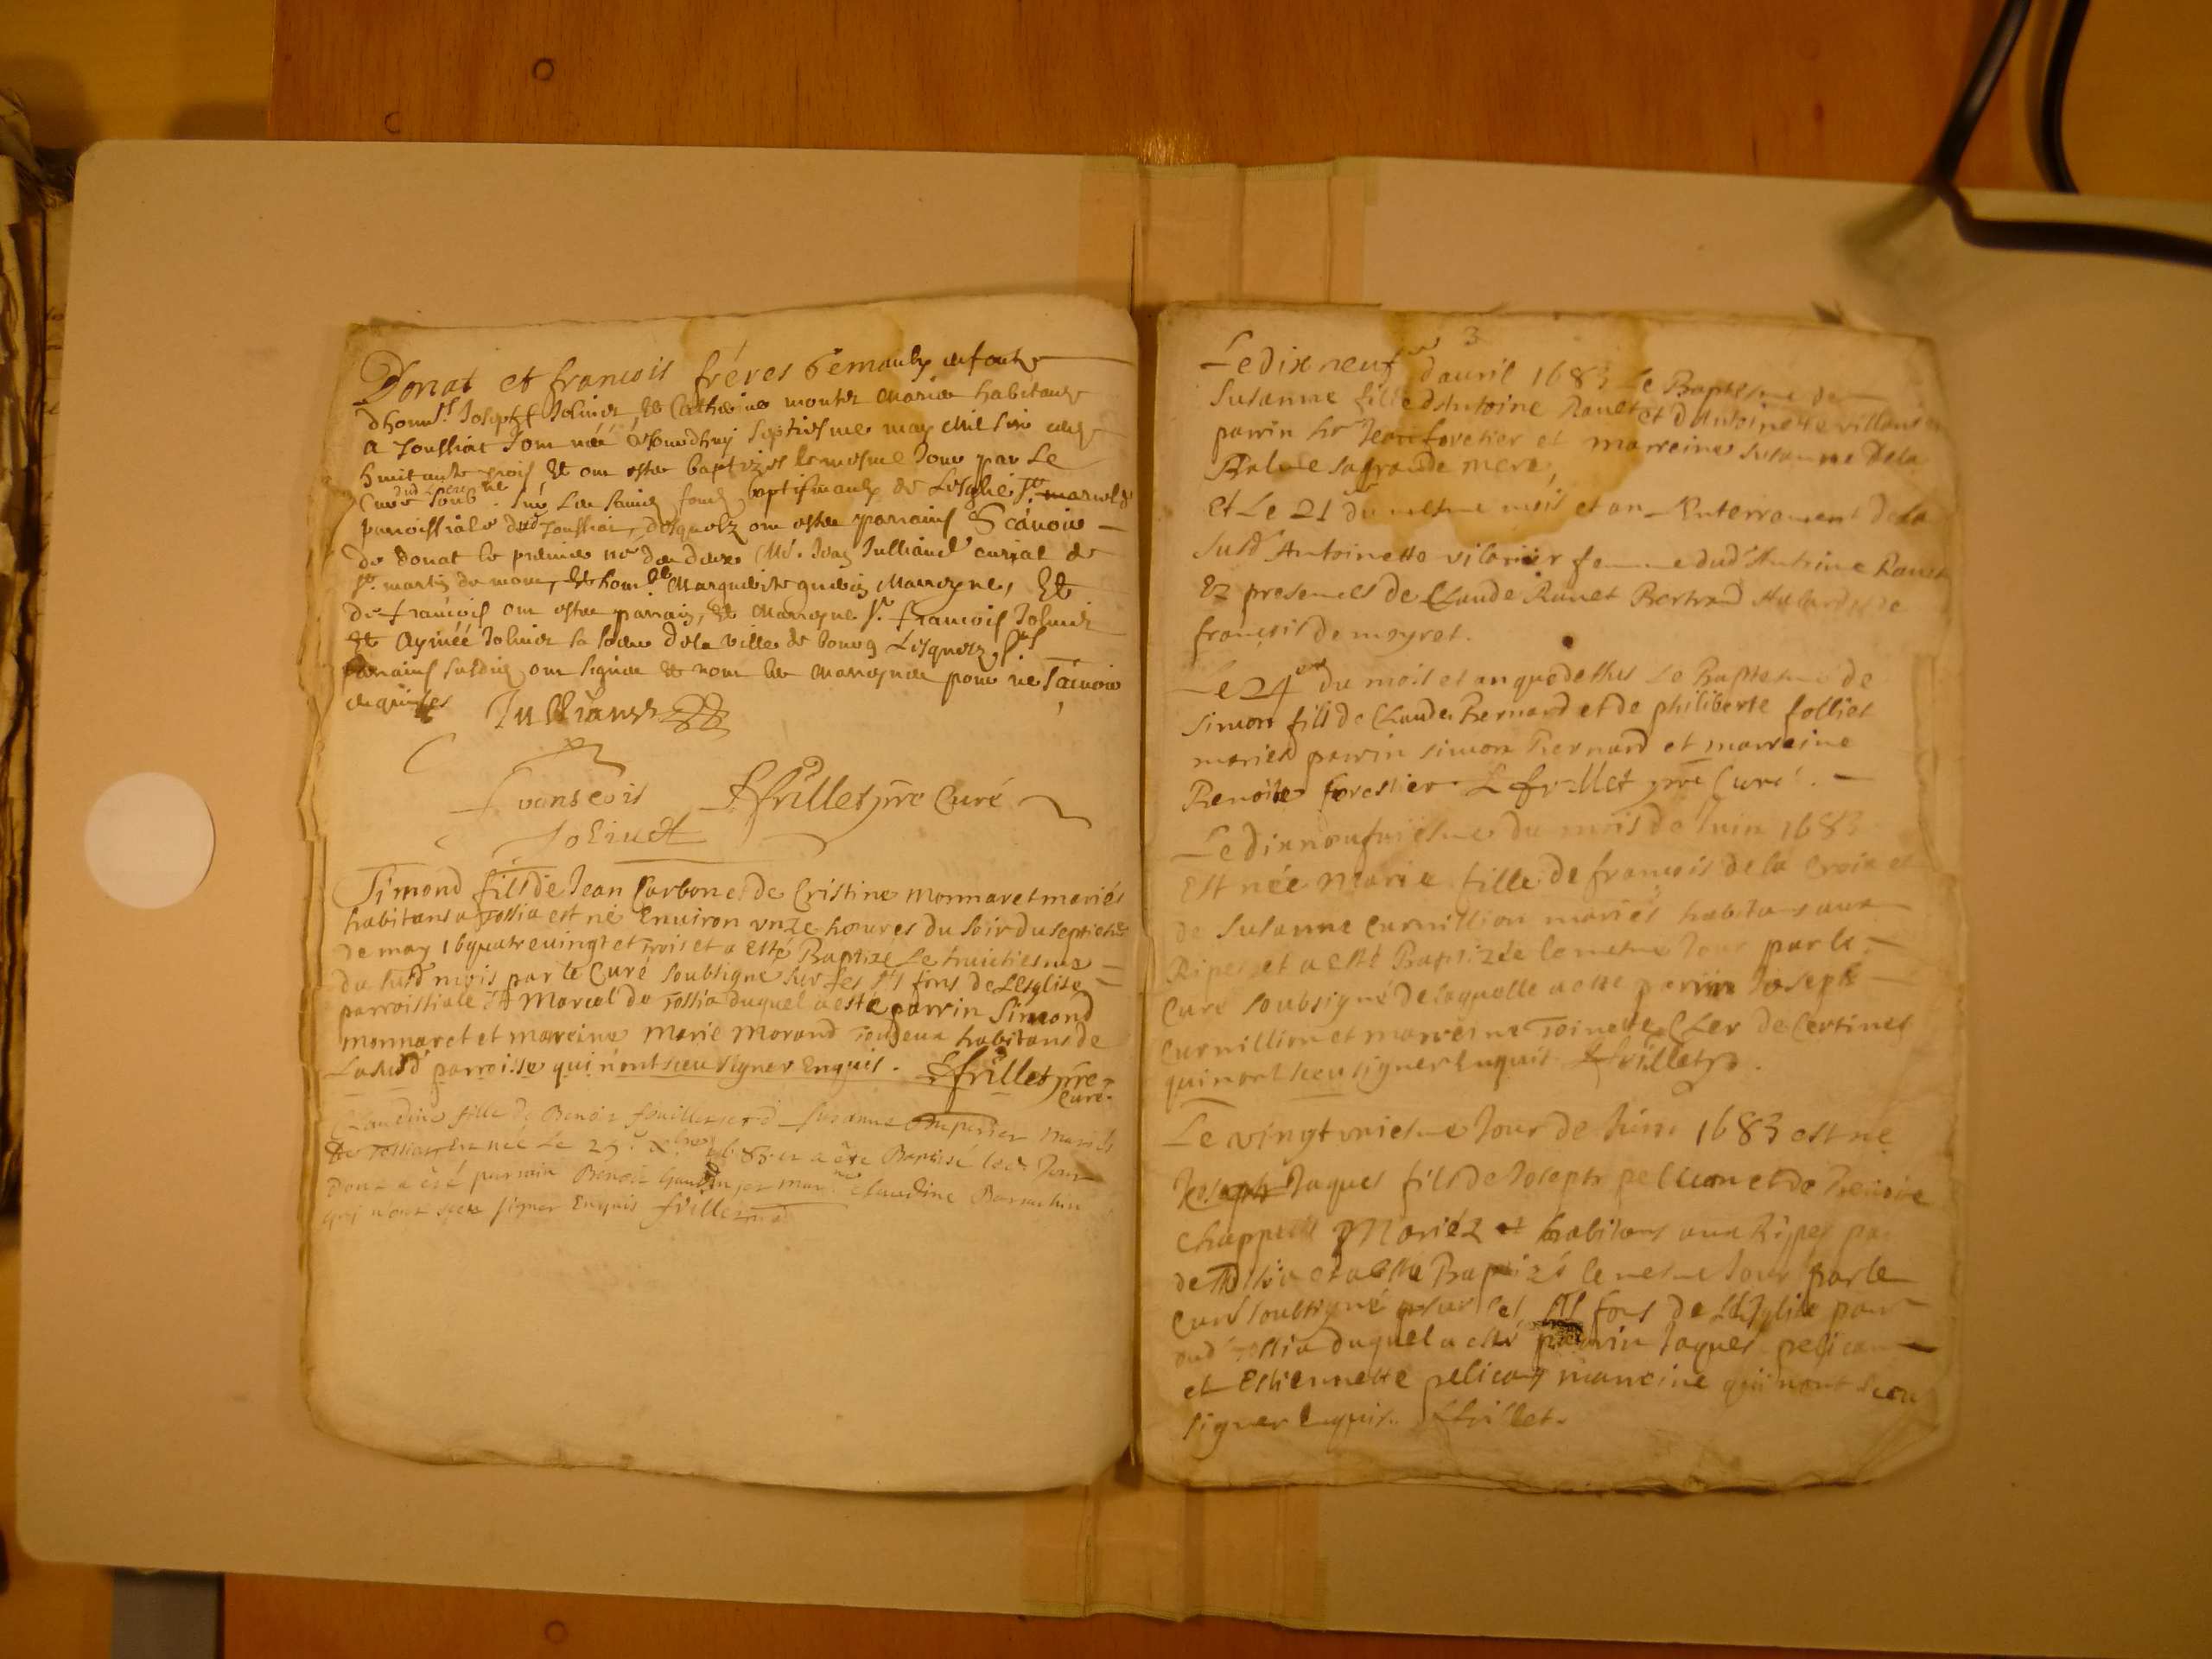 Donat et francois fréres gemaulx enfants
dhonn.ts Joseph Joliuet Et Catherine montet Mariés habitants
a Toussiat Sont néé Aujourdhuy septiesme may Mil six cens
huitante trois, Et ont estés baptizes le mesme Jour par Le
Curé dud lieu Soub.né sur Les saincts fonds baptismaulx de Lesglise St. marcel
parroissiale dud Toussiat, desquelz ont estés parrains Scauoir
de Donat le premier né des deux Me. Jean Julliand curial de
St. martin du mont, Et honn.te Marguerite Marreyne, Et
de francois ont estés parrain, Et Marreyne Sr. francois Joliuet
Et Aymée Joliuet sa soeur de la Ville de bourg Lesquelz
parrains susdits ont signés Et nom les Marreynes pour ne scauoir
enquises Julliand
franseois
Joliuet
Ffrillet pre Curé
Simond fils de Jean Carbon et de Cristine monnaret mariés
habitans a Tossia est né Enuiron vnze heures du soir du septiesme
de may 16quatreuingt et trois et a esté Baptizé Le huictiesme
du susd mois par le Curé soubsigne sur les Sts fons de Lesglise
parroissiale St Marcel de Tossia duquel a esté parrin Simond
monnaret et mareine Marie Morand tous deux habitans de
La susd parroisse qui n'ont sceu signer Enquis. Ffrillet pre
Curé.
Claudine fille de Benoit et d Susanne mariés
de Tossia est née Le 29e xbre 1683 et a été Baptisé led Jour
dont a été parrain Benoit et mar.ne Claudine
qui n'ont sceu signer Enquis frillet
3
Le dix neuf d auril 1683 Le Baptesme de
Susanne fille d'Antoine Ranet et d'Antoinette
parrin hr Jean foretier et marreine Susanne Dela
Balme sa grande mere,
Et Le 21 du mesme mois et an Enterrement de la
susd Antoinette vilarier femme dud Antoine Ranet
Ez presences de Claude Ranet Bertrand
françois de meyret.
Le 24 du mois et an que dessus Le Baptesme de
Simon fils de Claude Bernard et de philiberte folliet
mariés parrin simon Bernard et marreine
Benoite forestier Ffrillet pre Curé.
Le dix noufuiesme du mois de Iuin 1683
Est née Marie fille de françois de la Croix et
de Susanne Curnillion mariés habitans aux
Ripes et a esté Baptizée le mesme Jour par le
Curé soubsigné de laquelle a esté parrin Joseph
Curnillion et marreine Toinette Cler de Certines
qui nont sceu signer Enquis Ffrillet p.
Le vingt uniesme Jour de Iuin 1683 est né
Joseph Jaques fils de Joseph pellican et de Benoite
Chappuis Mariéz et habitans aux Ripes par
de Tossia et a esté Baptizé le mesme Jour par le
Curé soubsigné sur les Sts fons de L'Esglise parr
dud Tossia duquel a esté parrin Jaques pelican
et Estiennette pelican mareine qui nont sceu
signer Enquis. Ffrillet.